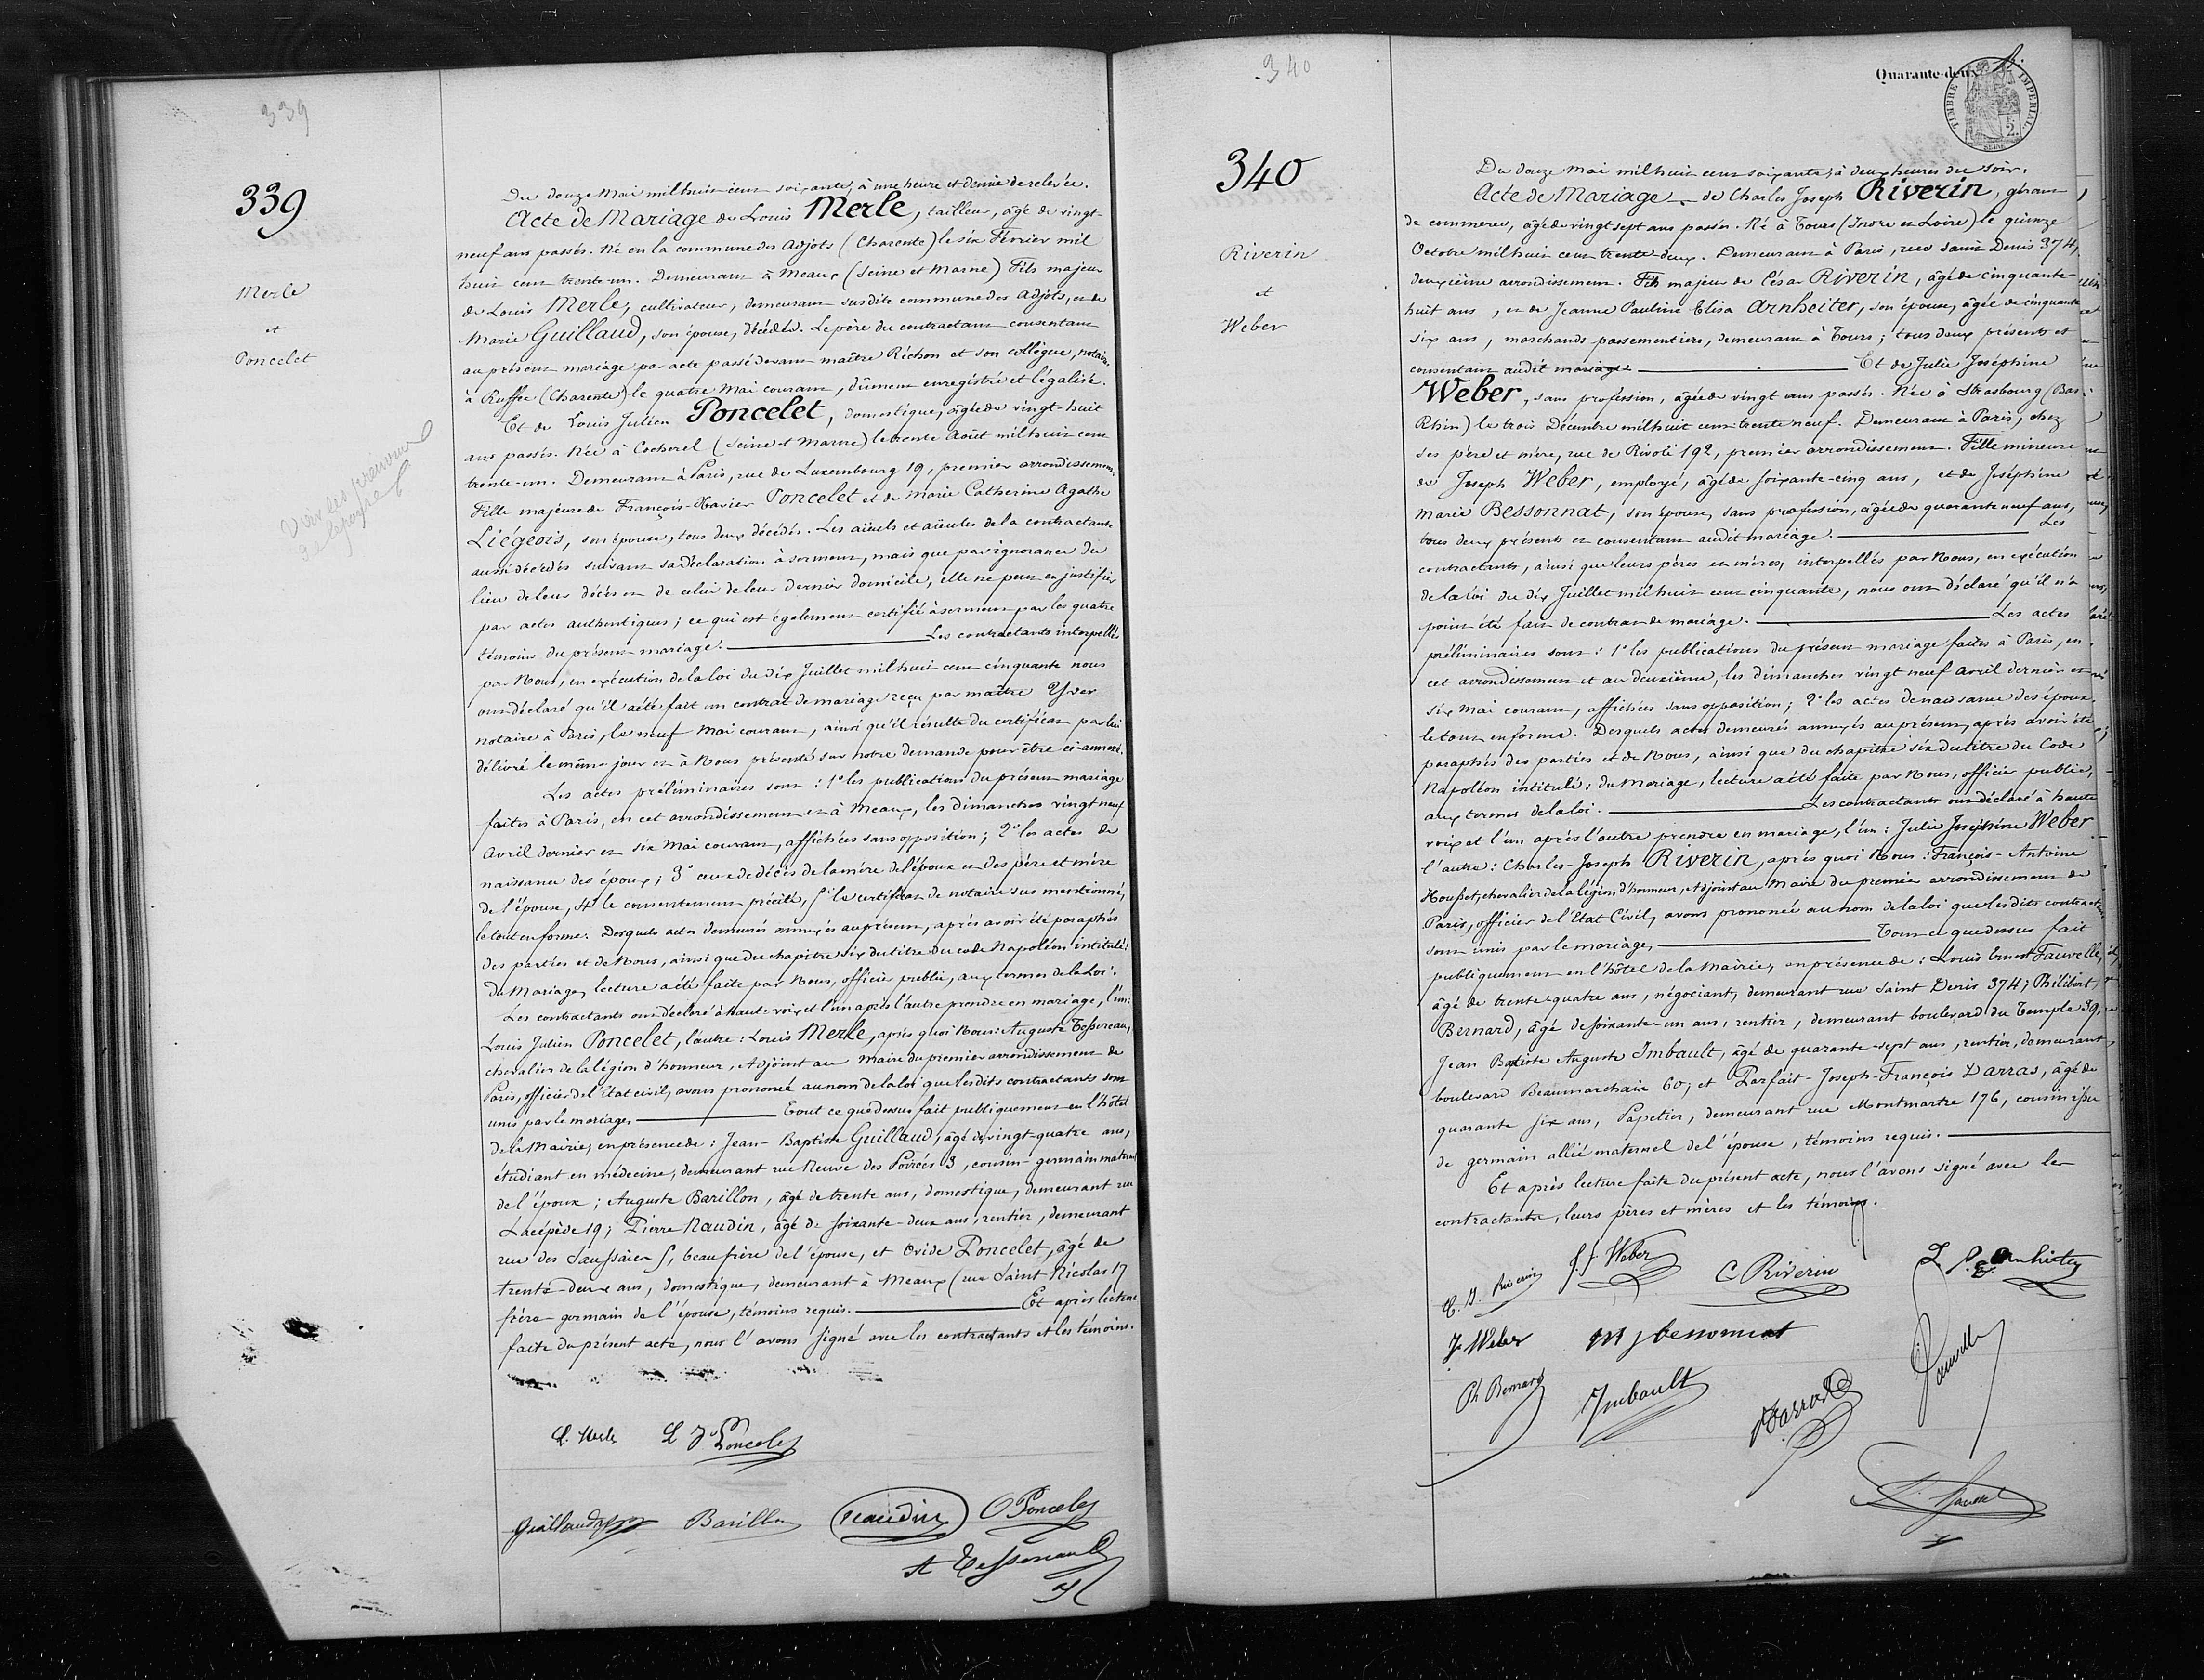 339
339
Merle
et
Poncelet
Voir les prénoms
de l'épouse
Du douze Mai mil huit cent soixante, à une heure et demie de relevée.
Acte de Mariage de Louis Merle, tailleur, âgé de vingt-
neuf ans passés. Né en la commune des Adjots (Charente) le six Février mil
huit cent trente-un. Demeurant à Meaux (Seine et Marne) Fils majeur
de Louis Merle, cultivateur, demeurant susdite commune des Adjots, et de
Marie Guillaud, son épouse, décédée. Le père du contractant consentant
au présent mariage par acte passé devant maître Réchon et son collègue, notaires
à Ruffec (Charente) le quatre Mai courant, dûment enregistré et légalisé.
Et de Louis Julien Poncelet, domestique, âgée de vingt-huit
ans passés. Née à Cocherel (Seine et Marne) le trente Août mil huit cent
trente-un. Demeurant à Paris, rue de Luxembourg 19, premier arrondissement,
Fille majeure de François-Xavier Poncelet et de Marie Catherine Agathe
Liégeois, son épouse, tous deux décédés. Les aïeuls et aïeules de la contractante
aussi décédés suivant sa déclaration à serment, mais que par ignorance du
lieu de leur décès et de celui de leur dernier domicile, elle ne peut en justifier
par actes authentiques; ce qui est également certifié à serment par les quatre
témoins du présent mariage. Les contractants interpellés
par Nous, en exécution de la loi du dix Juillet mil huit cent cinquante nous
ont déclaré qu'il a été fait un contrat de mariage reçu par maître Yver
notaire à Paris, le neuf Mai courant, ainsi qu'il résulte du certificat par lui
délivré le même jour et à Nous présenté sur notre demande pour être ci-annexé.
Les actes préliminaires sont: 1° les publications du présent mariage
faites à Paris, en cet arrondissement et à Meaux, les dimanches vingt neuf
Avril dernier et six Mai courant, affichées sans opposition; 2° les actes de
naissance des époux; 3° ceux de décès de la mère de l'époux et des père et mère
de l'épouse, 4° le consentement précité, 5° le certificat de notaire sus mentionné,
le tout en forme. Desquels actes demeurés annexés au présent, après avoir été paraphés
des parties et de Nous, ainsi que du chapitre six du titre du Code Napoléon intitulé:
du Mariage, lecture a été faite par Nous, officier public, aux termes de la Loi.
Les contractants ont déclaré à haute voix et l'un après l'autre prendre en mariage, l'un:
Louis Julien Poncelet, l'autre: Louis Merle, après quoi Nous: Auguste Tessereau,
chevalier de la légion d'honneur, Adjoint au Maire du premier arrondissement de
Paris, officier de l'Etat civil, avons prononcé au nom de la loi que lesdits contractants sont
unis par le mariage. Tout ce que dessus fait publiquement en l'hôtel
de la Mairie, en présence de: Jean-Baptiste Guillaud, âgé de vingt-quatre ans,
étudiant en médecine, demeurant rue Neuve des Poirées 3, cousin-germain maternel
de l'époux; Auguste Barillon, âgé de trente ans, domestique, demeurant rue
Lacépède 19; Pierre Naudin, âgé de soixante-deux ans, rentier, demeurant
rue des Saussaies 5, beau frère de l'épouse, et Ovide Poncelet, âgé de
trente-deux ans, domestique, demeurant à Meaux (rue Saint Nicolas 17
frère germain de l'épouse, témoins requis. Et après lecture
faite du présent acte, nous l'avons signé avec les contractants et les témoins.
L. Merle L J Poncelet
Guillaud Barillon Naudin O Poncelet
A Tessereau
340
340
Riverin
et
Weber
Quarante-deux
TIMBRE IMPERIAL
2.
SEINE
Du douze Mai mil huit cent soixante, à deux heures du soir.
Acte de Mariage de Charles Joseph Riverin, gérant
de commerce, âgé de vingt sept ans passés. Né à Tours (Indre et Loire) le quinze
Octobre mil huit cent trente-deux. Demeurant à Paris, rue Saint Denis 374,
deuxième arrondissement. Fils majeur de César Riverin, âgé de cinquante-
huit ans, et de Jeanne Pauline Elisa Arnheiter, son épouse, âgée de cinquante
six ans, marchands passementiers, demeurant à Tours; tous deux présents et
consentant audit mariage. Et de Julie Joséphine
Weber, sans profession, âgée de vingt ans passés. Née à Strasbourg (Bas-
Rhin) le trois Décembre mil huit cent trente neuf. Demeurant à Paris, chez
ses père et mère, rue de Rivoli 192, premier arrondissement. Fille mineure
de Joseph Weber, employé, âgé de soixante-cinq ans, et de Joséphine
Marie Bessonnat, son épouse, sans profession, âgée de quarante neuf ans,
tous deux présents et consentant audit mariage. Les
contractants, ainsi que leurs pères et mères, interpellés par Nous, en exécution
de la loi du dix Juillet mil huit cent cinquante, nous ont déclaré qu'il n'a
point été fait de contrat de mariage. Les actes
préliminaires sont: 1° les publications du présent mariage faites à Paris, en
cet arrondissement et au deuxième, les dimanches vingt neuf Avril dernier et
six Mai courant, affichées sans opposition; 2° les actes de naissance des époux
le tout en forme. Desquels actes demeurés annexés au présent, après avoir été
paraphés des parties et de Nous, ainsi que du chapitre six du titre du Code
Napoléon intitulé: du Mariage, lecture a été faite par Nous, officier public,
aux termes de la loi. Les contractants ont déclaré à haute
voix et l'un après l'autre prendre en mariage, l'un: Julie Joséphine Weber
l'autre: Charles-Joseph Riverin, après quoi Nous: François-Antoine
Housset, chevalier de la légion d'honneur, Adjoint au Maire du premier arrondissement de
Paris, officier de l'Etat Civil, avons prononcé au nom de la loi que lesdits contractants
sont unis par le mariage. Tout ce que dessus fait
publiquement en l'hôtel de la Mairie, en présence de: Louis Ernest Fauvelle,
âgé de trente-quatre ans, négociant, demeurant rue Saint Denis 374; Philibert
Bernard, âgé de soixante-un ans, rentier, demeurant boulevard du Temple 39,
Jean Baptiste Auguste Imbault, âgé de quarante-sept ans, rentier, demeurant
boulevard Beaumarchais 60; et Parfait-Joseph-François Darras, âgé de
quarante six ans, Papetier, demeurant rue Montmartre 176, cousin issu
de germain allié maternel de l'épouse, témoins requis.
Et après lecture faite du présent acte, nous l'avons signé avec les
contractants, leurs pères et mères et les témoins.
C. J. Riverin J. J Weber C Riverin
J Weber M J bessonnat Fauvelle
Ph Bernard Imbault Darras
Housset